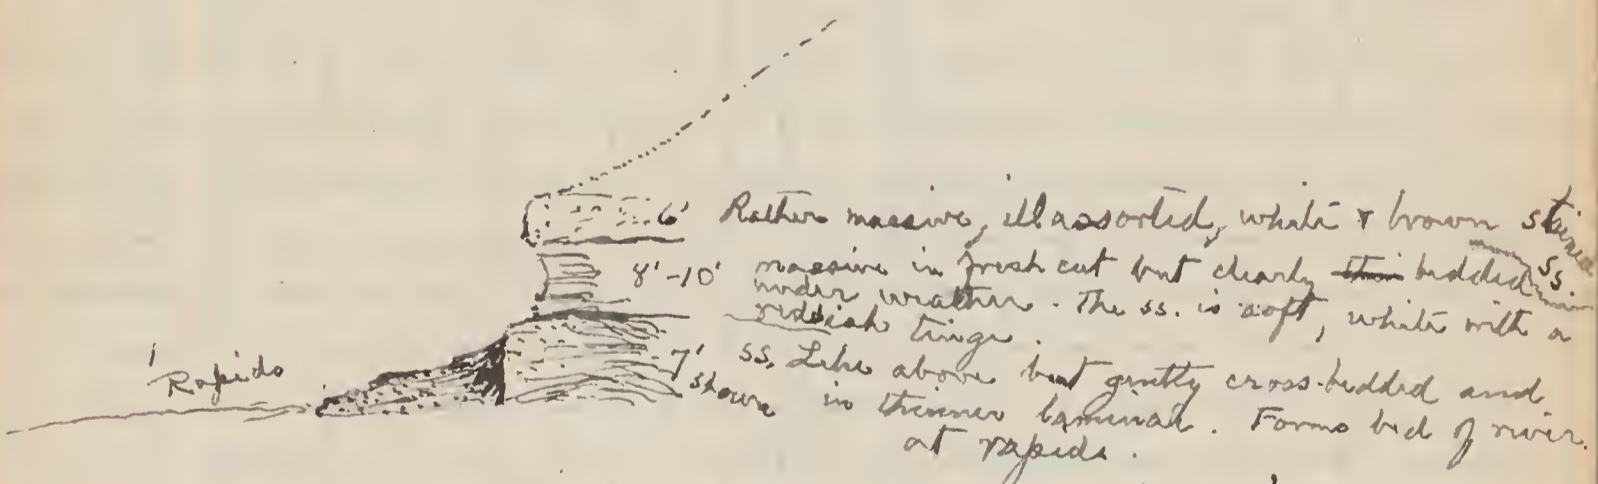 6' Rather massive, illassorted, white & brown stained ss.
8'-10' massive in fresh cut but clearly thin bedded
under weather. The ss. is soft, white with a
reddish tinge.
7' ss. Like above but gently cross-bedded and
shown in thinner laminae. Forms bed of river
at rapids.
Rapids